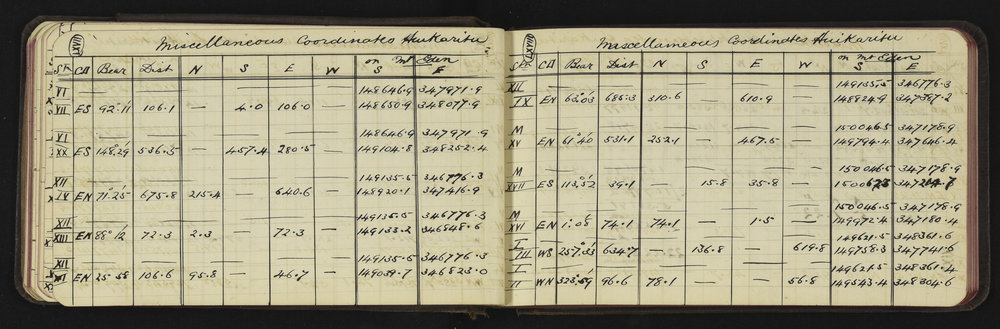 Miscellaneous Coordinates Huikaritu
on Mt Eden
SK CII Bear Dist N S E W S E
VI — — — — — — — 148646.9 347971.9
VII ES 92°.11 106.1 — 4.0 106.0 — 148650.9 348077.9
XI — — — — — — — 148646.9 347971.9
XX ES 148°.29 536.5 — 457.4 280.5 — 149104.8 348252.4
XII — — — — — — — 149135.5 346776.3
IV EN 71°.25' 675.8 215.4 — 640.6 — 148920.1 347416.9
XII — — — — — — — 149135.5 346776.3
XIII EN 88°.12 72.3 2.3 — 72.3 — 149133.2 346848.6
XII — — — — — — — 149135.5 346776.3
EN 25°.58 106.6 95.8 — 46.7 — 149039.7 346823.0
Miscellaneous Coordinates Huikaritu
on Mt Eden
CII Bear Dist N S E W S E
XII — — — — — — — 149135.5 346776.3
IX EN 63°.03 685.3 310.6 — 610.9 — 148824.9 347387.2
M — — — — — — — 150046.5 347178.9
XV EN 61°.40' 531.1 252.1 — 467.5 — 149794.4 347646.4
M — — — — — — — 150046.5 347178.9
XVII ES 113°.52 39.1 — 15.8 35.8 —
M — — — — — — — 150046.5 347178.9
XVI EN 1°.08' 74.1 74.1 — 1.5 — 149972.4 347180.4
I — — — — — — — 149621.5 348361.6
VIII WS 257°.33 634.7 — 136.8 — 619.8 149758.3 347741.6
I — — — — — — — 149621.5 348361.4
VI WN 323°.59' 96.6 78.1 — — 56.8 149543.4 348304.6